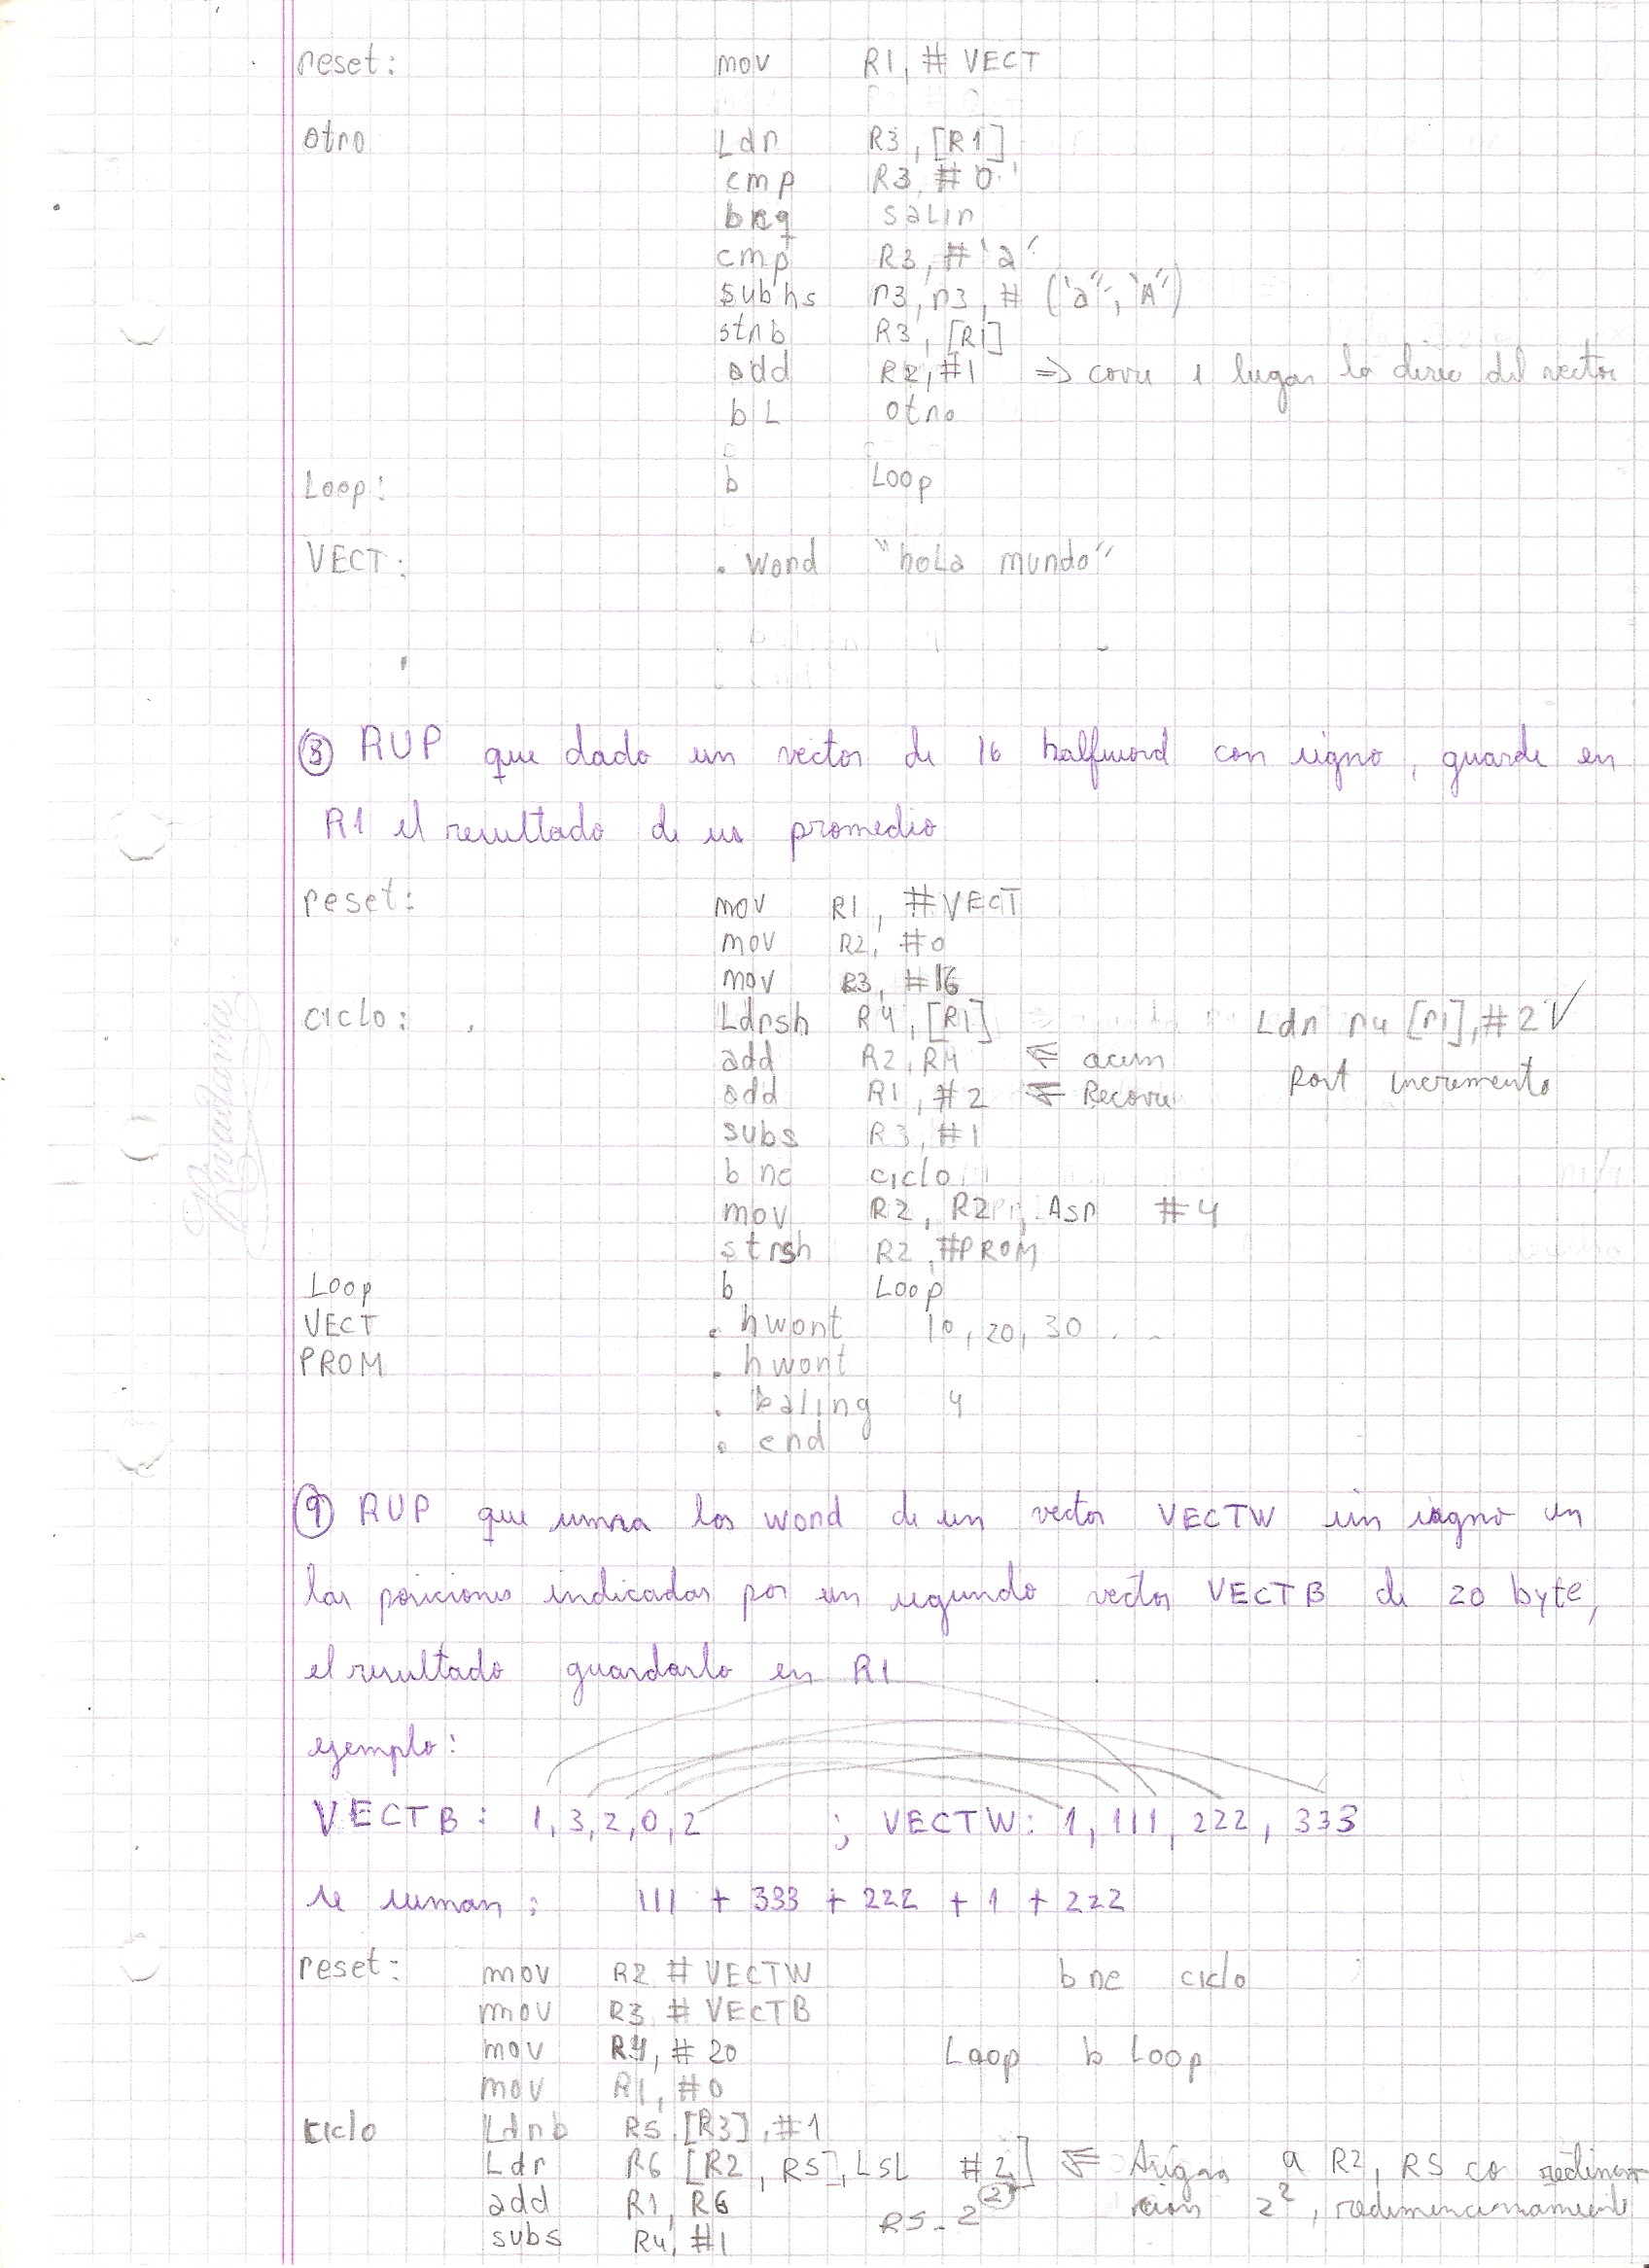 reset: mov R1, # VECT
otro Ldr R3, [R1]
cmp R3, #0
beq salir
cmp R3, # 'a'
subhs r3, r3, # ('a'-'A')
strb R3, [R1]
add R2, #1 => corre 1 lugar la direc del vector
bL otro
Loop: b Loop
VECT: .word "hola mundo"
③ RUP que dado un vector de 16 halfword con signo, guarde en
R1 el resultado de su promedio
reset: mov R1, #VECT
mov R2, #0
mov R3, #16
ciclo: Ldrsh R4, [R1] Ldr r4 [r1], #2 √
add R2, R4 ⇐ acum Post incremento
add R1, #2 ⇐ Recorre
subs R3, #1
bne ciclo
mov R2, R2, Asr #4
strsh R2, #PROM
Loop b Loop
VECT .hwort 10, 20, 30 . . .
PROM .hwort
.baling 4
.end
⑨ RUP que suma los word de un vector VECTW sin signo en
las posiciones indicadas por un segundo vector VECTB de 20 byte,
el resultado guardarlo en R1
ejemplo:
VECTB: 1, 3, 2, 0, 2 ; VECTW: 1, 111, 222, 333
se suman: 111 + 333 + 222 + 1 + 222
reset: mov R2 # VECTW bne ciclo
mov R3 # VECTB
mov R4, # 20 Loop b Loop
mov R1, #0
ciclo Ldrb R5, [R3], #1
Ldr R6 [R2, R5], LSL #2] ⇐ Asigna a R2, R5 co
add R1, R6 R5.2② 2²,
subs R4, #1
Rivadavia